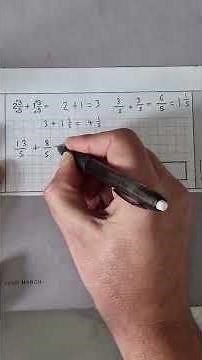 2 3/5 + 1 3/5 = 2 + 1 = 3 3/5 + 3/5 = 6/5 = 1 1/5
3 + 1 1/5 = 4 1/5
13/5 + 8/5